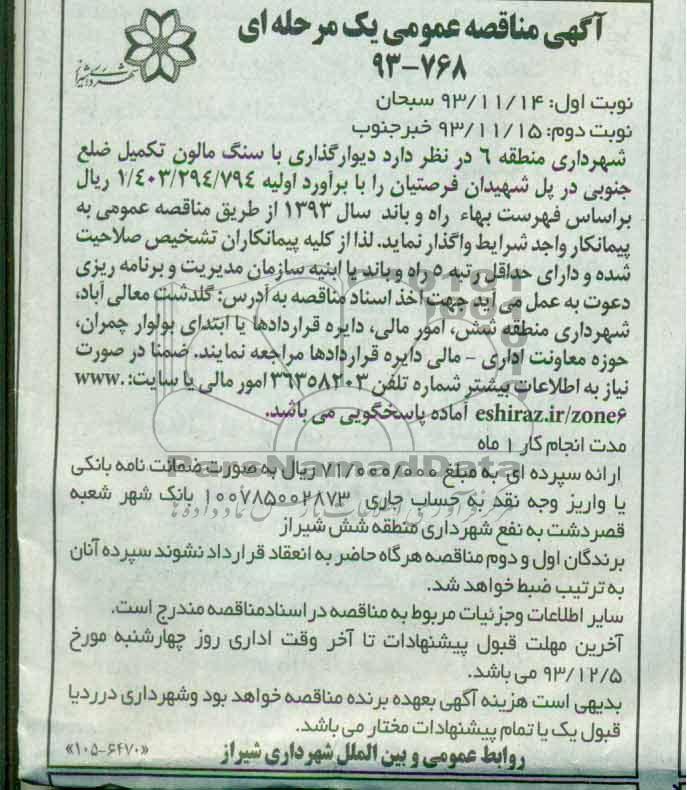 آگهی مناقصه عمومی یک مرحله ای
۹۳-۷۶۸
شهرداری شیراز
نوبت اول: ۹۳/۱۱/۱۴ سبحان
نوبت دوم: ۹۳/۱۱/۱۵ خبرجنوب
شهرداری منطقه ٦ در نظر دارد دیوارگذاری با سنگ مالون تکمیل ضلع
جنوبی در پل شهیدان فرصتیان را با برآورد اولیه ۱/٤۰۳/۲۹٤/۷۹٤ ریال
براساس فهرست بهاء راه و باند سال ۱۳۹۳ از طریق مناقصه عمومی به
پیمانکار واجد شرایط واگذار نماید. لذا از کلیه پیمانکاران تشخیص صلاحیت
شده و دارای حداقل رتبه ۵ راه و باند یا ابنیه سازمان مدیریت و برنامه ریزی
دعوت به عمل می آید جهت اخذ اسناد مناقصه به آدرس: گلدشت معالی آباد،
شهرداری منطقه شش، امور مالی، دایره قراردادها یا ابتدای بولوار چمران،
حوزه معاونت اداری - مالی دایره قراردادها مراجعه نمایند. ضمنا در صورت
نیاز به اطلاعات بیشتر شماره تلفن ۳٦۳۵۸۲۰۳ امور مالی یا سایت: www.
eshiraz.ir/zone۶ آماده پاسخگویی می باشد.
مدت انجام کار ۱ ماه
ارائه سپرده ای به مبلغ ۷۱/۰۰۰/۰۰۰ ریال به صورت ضمانت نامه بانکی
یا واریز وجه نقد به حساب جاری ۱۰۰۷۸۵۰۰۲۸۷۳ بانک شهر شعبه
قصردشت به نفع شهرداری منطقه شش شیراز
برندگان اول و دوم مناقصه هرگاه حاضر به انعقاد قرارداد نشوند سپرده آنان
به ترتیب ضبط خواهد شد.
سایر اطلاعات وجزئیات مربوط به مناقصه در اسنادمناقصه مندرج است.
آخرین مهلت قبول پیشنهادات تا آخر وقت اداری روز چهارشنبه مورخ
۹۳/۱۲/۵ می باشد.
بدیهی است هزینه آگهی بعهده برنده مناقصه خواهد بود وشهرداری درردیا
قبول یک یا تمام پیشنهادات مختار می باشد.
روابط عمومی و بین الملل شهرداری شیراز
«۱۰۵-۶۴۷۰»
ParsNamadData